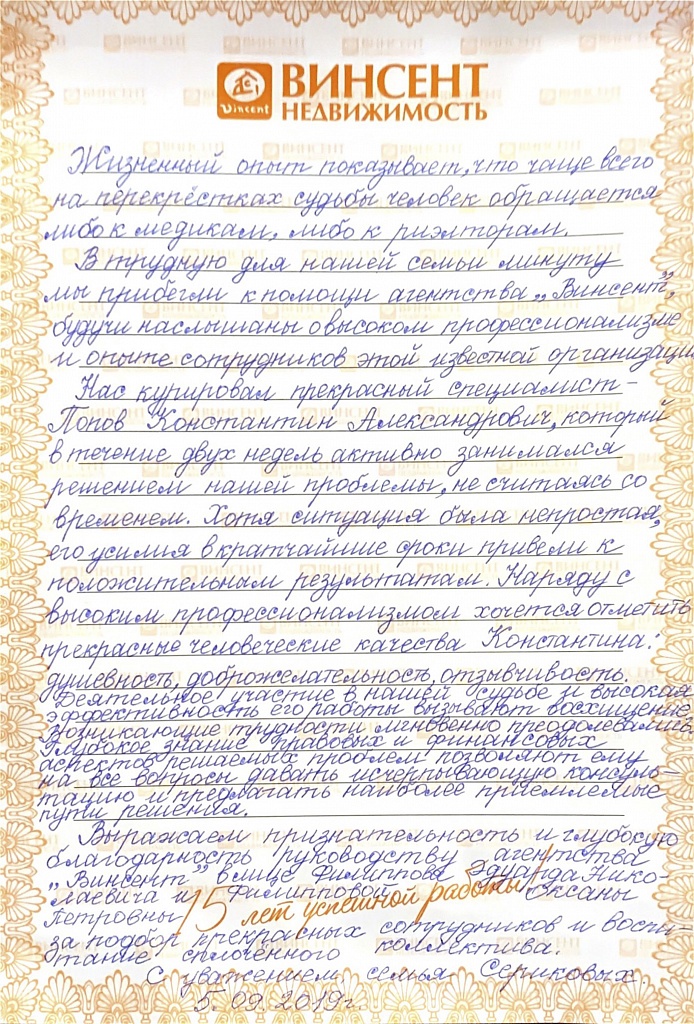 Vincent
ВИНСЕНТ
НЕДВИЖИМОСТЬ
Жизненный опыт показывает, что чаще всего
на перекрёстках судьбы человек обращается
либо к медикам, либо к риэлторам.
В трудную для нашей семьи минуту
мы прибегли к помощи агентства „Винсент",
будучи наслышаны о высоком профессионализме
и опыте сотрудников этой известной организации.
Нас курировал прекрасный специалист -
Попов Константин Александрович, который
в течение двух недель активно занимался
решением нашей проблемы, не считаясь со
временем. Хотя ситуация была непростая,
его усилия в кратчайшие сроки привели к
положительным результатам. Наряду с
высоким профессионализмом хочется отметить
прекрасные человеческие качества Константина:
душевность, доброжелательность, отзывчивость.
Деятельное участие в нашей судьбе и высокая
эффективность его работы вызывают восхищение.
Возникающие трудности мгновенно преодолевались.
Глубокое знание правовых и финансовых
аспектов решаемых проблем позволяют ему
на все вопросы давать исчерпывающую консуль-
тацию и предлагать наиболее приемлемые
пути решения.
Выражаем признательность и глубокую
благодарность руководству агентства
„Винсент" в лице Филиппова Эдуарда Нико-
лаевича и Филипповой Оксаны
Петровны
15 лет успешной работы!
за подбор прекрасных сотрудников и воспи-
тание сплочённого коллектива.
С уважением семья Сериковых.
5.09.2019г.